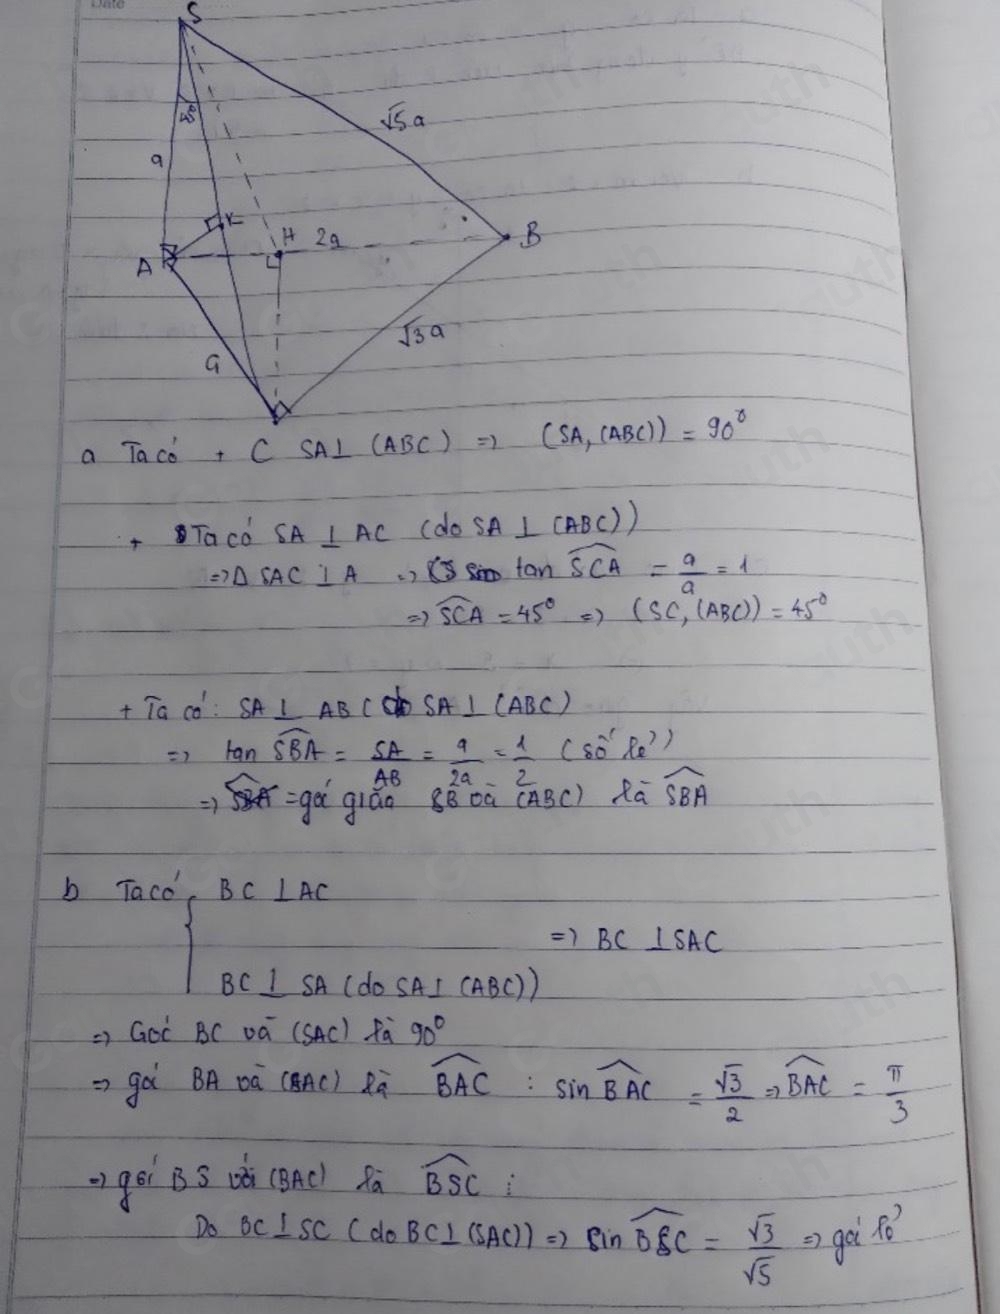 Date
S
45°
√5a
a
K
H 2a
B
A
√3a
a
a Ta có + C SA⊥ (ABC) => (SA, (ABC)) = 90°
+ Ta có SA ⊥ AC (do SA ⊥ (ABC))
=> Δ SAC ⊥ A => tan SCA = a/a = 1
=> SCA = 45° => (SC, (ABC)) = 45°
+ Ta có: SA ⊥ AB ( do SA ⊥ (ABC)
=> tan SBA = SA/AB = a/2a = 1/2 (số lẻ)
=> góc giữa SB và (ABC) là SBA
b Ta có { BC ⊥ AC
=> BC ⊥ SAC
BC ⊥ SA (do SA⊥ (ABC))
=> Góc BC và (SAC) là 90°
=> góc BA và (SAC) là BAC : sin BAC = √3/2 => BAC = π/3
=> góc BS với (BAC) là BSC :
Do BC ⊥ SC (do BC⊥ (SAC)) => sin BSC = √3/√5 => góc lẻ